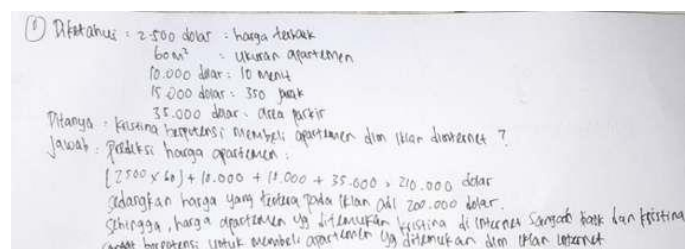 ① Diketahui : 2.500 dolar : harga terbaik
60 m² : ukuran apartemen
10.000 dolar : 10 menit
15.000 dolar : 350 jarak
35.000 dolar : area parkir
Ditanya : Kristina berpotensi membeli apartemen dlm iklan dinternet ?
Jawab : Prediksi harga apartemen :
(2500 x 60) + 10.000 + 15.000 + 35.000 = 210.000 dolar
Sedangkan harga yang tertera pada iklan adl 200.000 dolar.
Sehingga, harga apartemen yg ditemukan Kristina di internet sangat baik dan Kristina
sangat berpotensi untuk membeli apartemen yg ditemukan dlm iklan internet